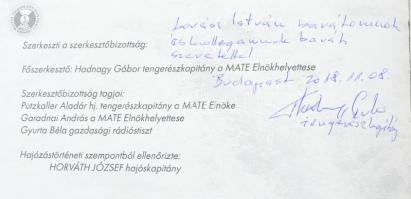 Lovász István barátomnak
és kollegámnak baráti
szeretettel
Budapest 2018.11.08.
Szerkeszti a szerkesztőbizottság:
Főszerkesztő: Hadnagy Gábor tengerészkapitány a MATE Elnökhelyettese
Szerkesztőbizottság tagjai:
Putzkaller Aladár hj. tengerészkapitány a MATE Elnöke
Garadnai András a MATE Elnökhelyettese
Gyurta Béla gazdasági rádióstiszt
tengerészkapitány
Hajózástörténeti szempontból ellenőrizte:
HORVÁTH JÓZSEF hajóskapitány